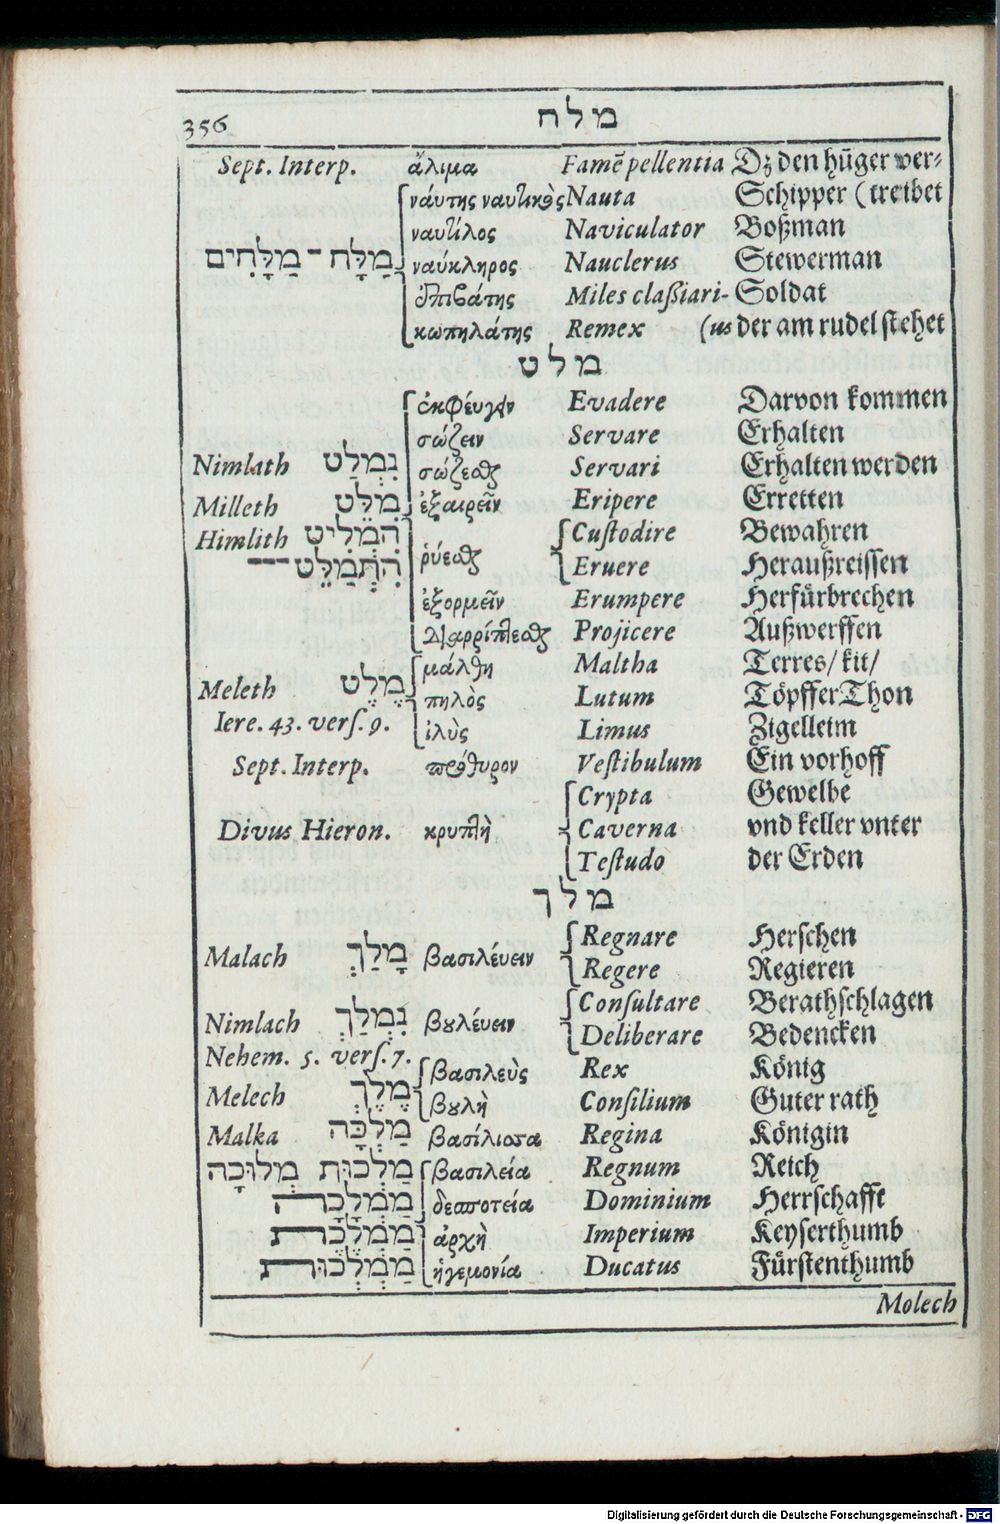 356 מלח
Sept. Interp. ἄλιμα Famē pellentia Dz den hūger ver-
ναύτης ναυτικὸς Nauta Schipper (treibet
ναυτίλος Naviculator Boßman
מַלָּח - מַלָּחִים ναύκληρος Nauclerus Stewerman
ἐπιβάτης Miles claßiari- Soldat
κωπηλάτης Remex (us der am rudel stehet
מלט
ἐκφέυγειν Evadere Darvon kommen
σώζειν Servare Erhalten
Nimlath נִמְלַט σώζεσθαι Servari Erhalten werden
Milleth מִלֵּט ἐξαιρεῖν Eripere Erretten
Himlith הִמְלִיט Custodire Bewahren
הִתְמַלֵּט --- ῥύεσθαι Eruere Heraußreissen
ἐξορμεῖν Erumpere Herfürbrechen
διαρρίπτεσθαι Projicere Außwerffen
μάλθη Maltha Terres/ kit/
Meleth מֶלֶט πηλὸς Lutum Töpffer Thon
Iere. 43. vers. 9. ἰλὺς Limus Zigelleim
Sept. Interp. πρόθυρον Vestibulum Ein vorhoff
Crypta Gewelbe
Divus Hieron. κρυπτὴ Caverna vnd keller vnter
Testudo der Erden
מלך
Regnare Herschen
Malach מָלַךְ βασιλέυειν Regere Regieren
Consultare Berathschlagen
Nimlach נִמְלַךְ βουλέυειν Deliberare Bedencken
Nehem. 5. vers. 7. βασιλεὺς Rex König
Melech מֶלֶךְ βουλὴ Consilium Guter rath
Malka מַלְכָּה βασίλισσα Regina Königin
מַלְכוּת מְלוּכָה βασιλεία Regnum Reich
מַמְלָכָה δεσποτεία Dominium Herrschafft
מַמְלֶכֶת ἀρχὴ Imperium Keyserthumb
מַמְלְכוּת ἡγεμονία Ducatus Fürstenthumb
Molech
Digitalisierung gefördert durch die Deutsche Forschungsgemeinschaft - DFG